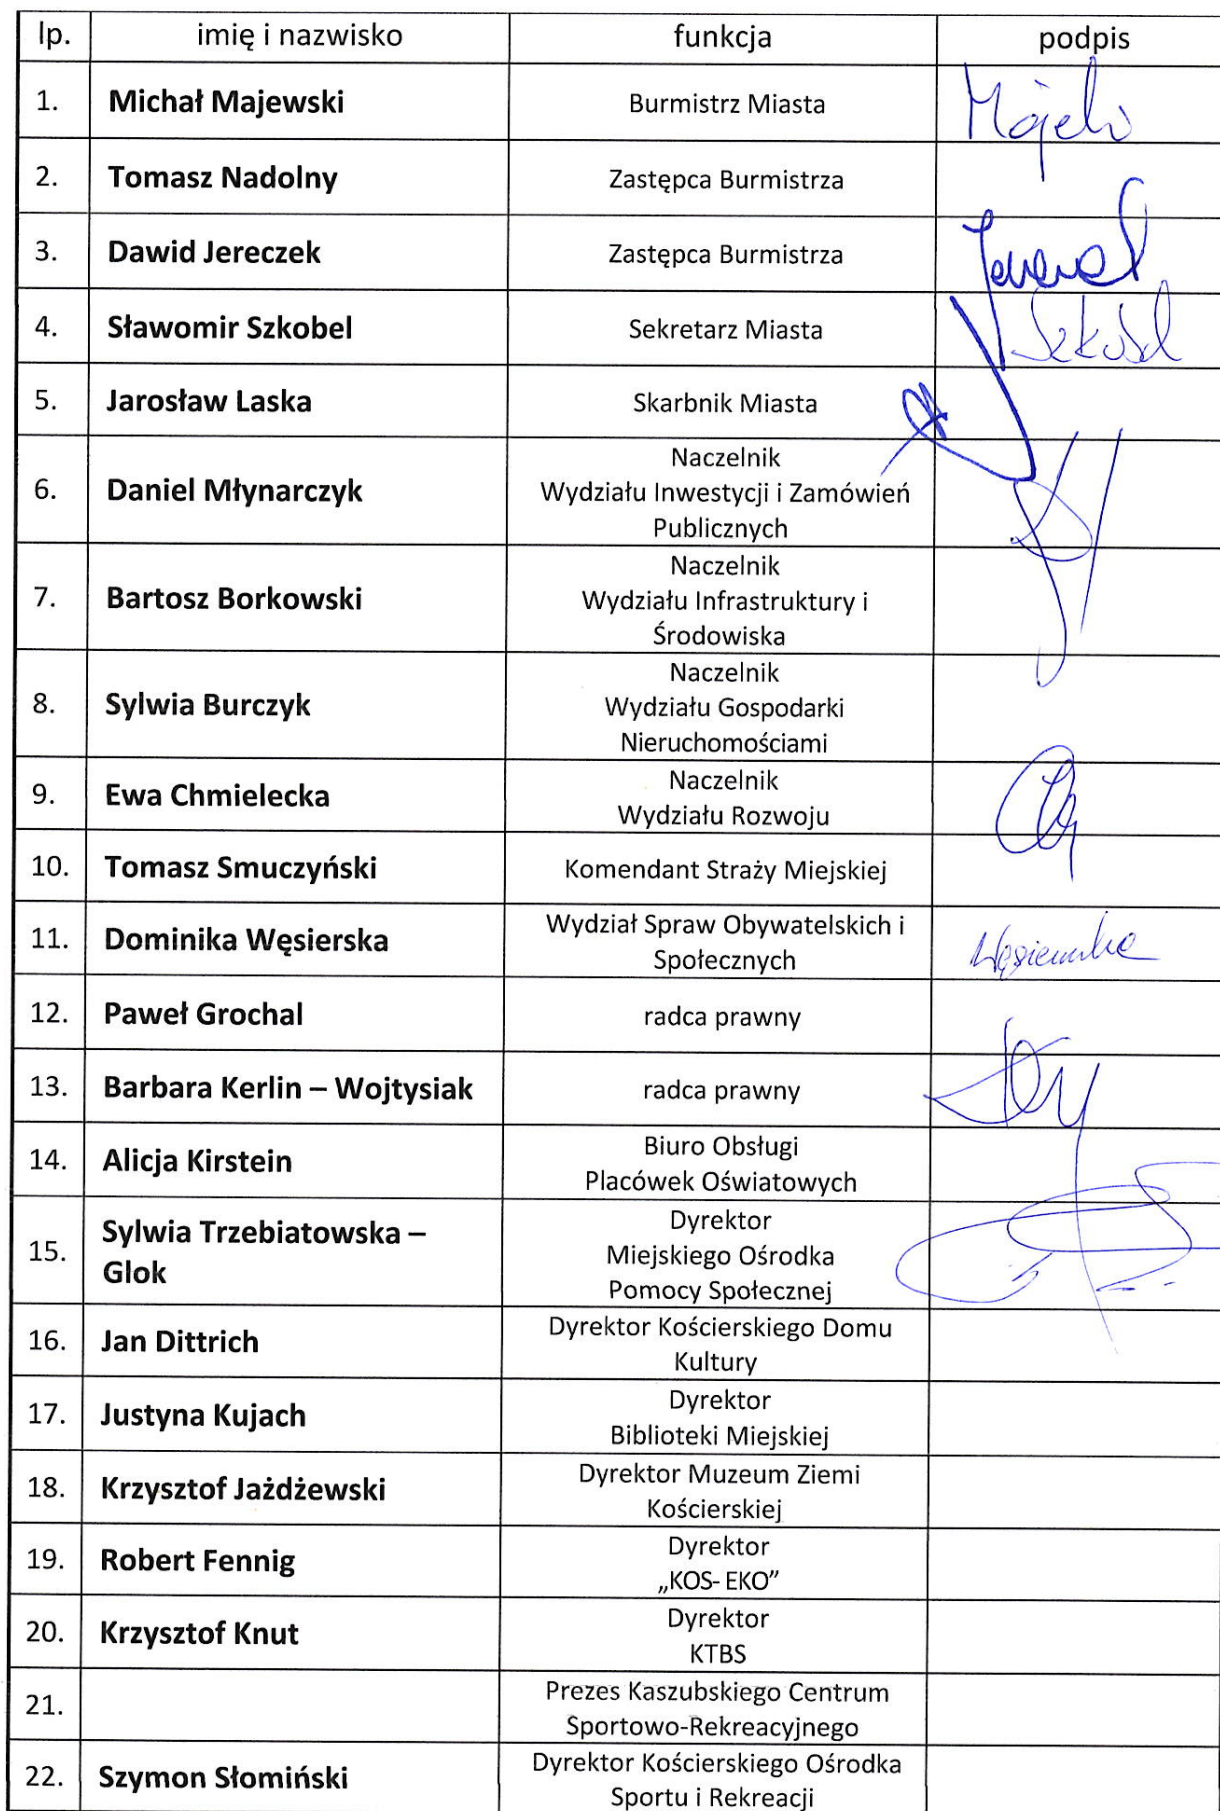 lp. imię i nazwisko funkcja podpis
1. Michał Majewski Burmistrz Miasta
2. Tomasz Nadolny Zastępca Burmistrza
3. Dawid Jereczek Zastępca Burmistrza
4. Sławomir Szkobel Sekretarz Miasta Szkobel
5. Jarosław Laska Skarbnik Miasta
6. Daniel Młynarczyk Naczelnik
Wydziału Inwestycji i Zamówień
Publicznych
7. Bartosz Borkowski Naczelnik
Wydziału Infrastruktury i
Środowiska
8. Sylwia Burczyk Naczelnik
Wydziału Gospodarki
Nieruchomościami
9. Ewa Chmielecka Naczelnik
Wydziału Rozwoju
10. Tomasz Smuczyński Komendant Straży Miejskiej
11. Dominika Węsierska Wydział Spraw Obywatelskich i
Społecznych Węsierska
12. Paweł Grochal radca prawny
13. Barbara Kerlin – Wojtysiak radca prawny
14. Alicja Kirstein Biuro Obsługi
Placówek Oświatowych
15. Sylwia Trzebiatowska –
Glok Dyrektor
Miejskiego Ośrodka
Pomocy Społecznej
16. Jan Dittrich Dyrektor Kościerskiego Domu
Kultury
17. Justyna Kujach Dyrektor
Biblioteki Miejskiej
18. Krzysztof Jażdżewski Dyrektor Muzeum Ziemi
Kościerskiej
19. Robert Fennig Dyrektor
„KOS- EKO”
20. Krzysztof Knut Dyrektor
KTBS
21. Prezes Kaszubskiego Centrum
Sportowo-Rekreacyjnego
22. Szymon Słomiński Dyrektor Kościerskiego Ośrodka
Sportu i Rekreacji